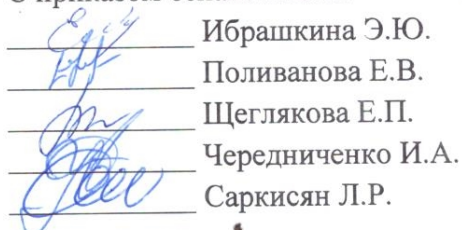 Ибрашкина Э.Ю.
Поливанова Е.В.
Щеглякова Е.П.
Чередниченко И.А.
Саркисян Л.Р.